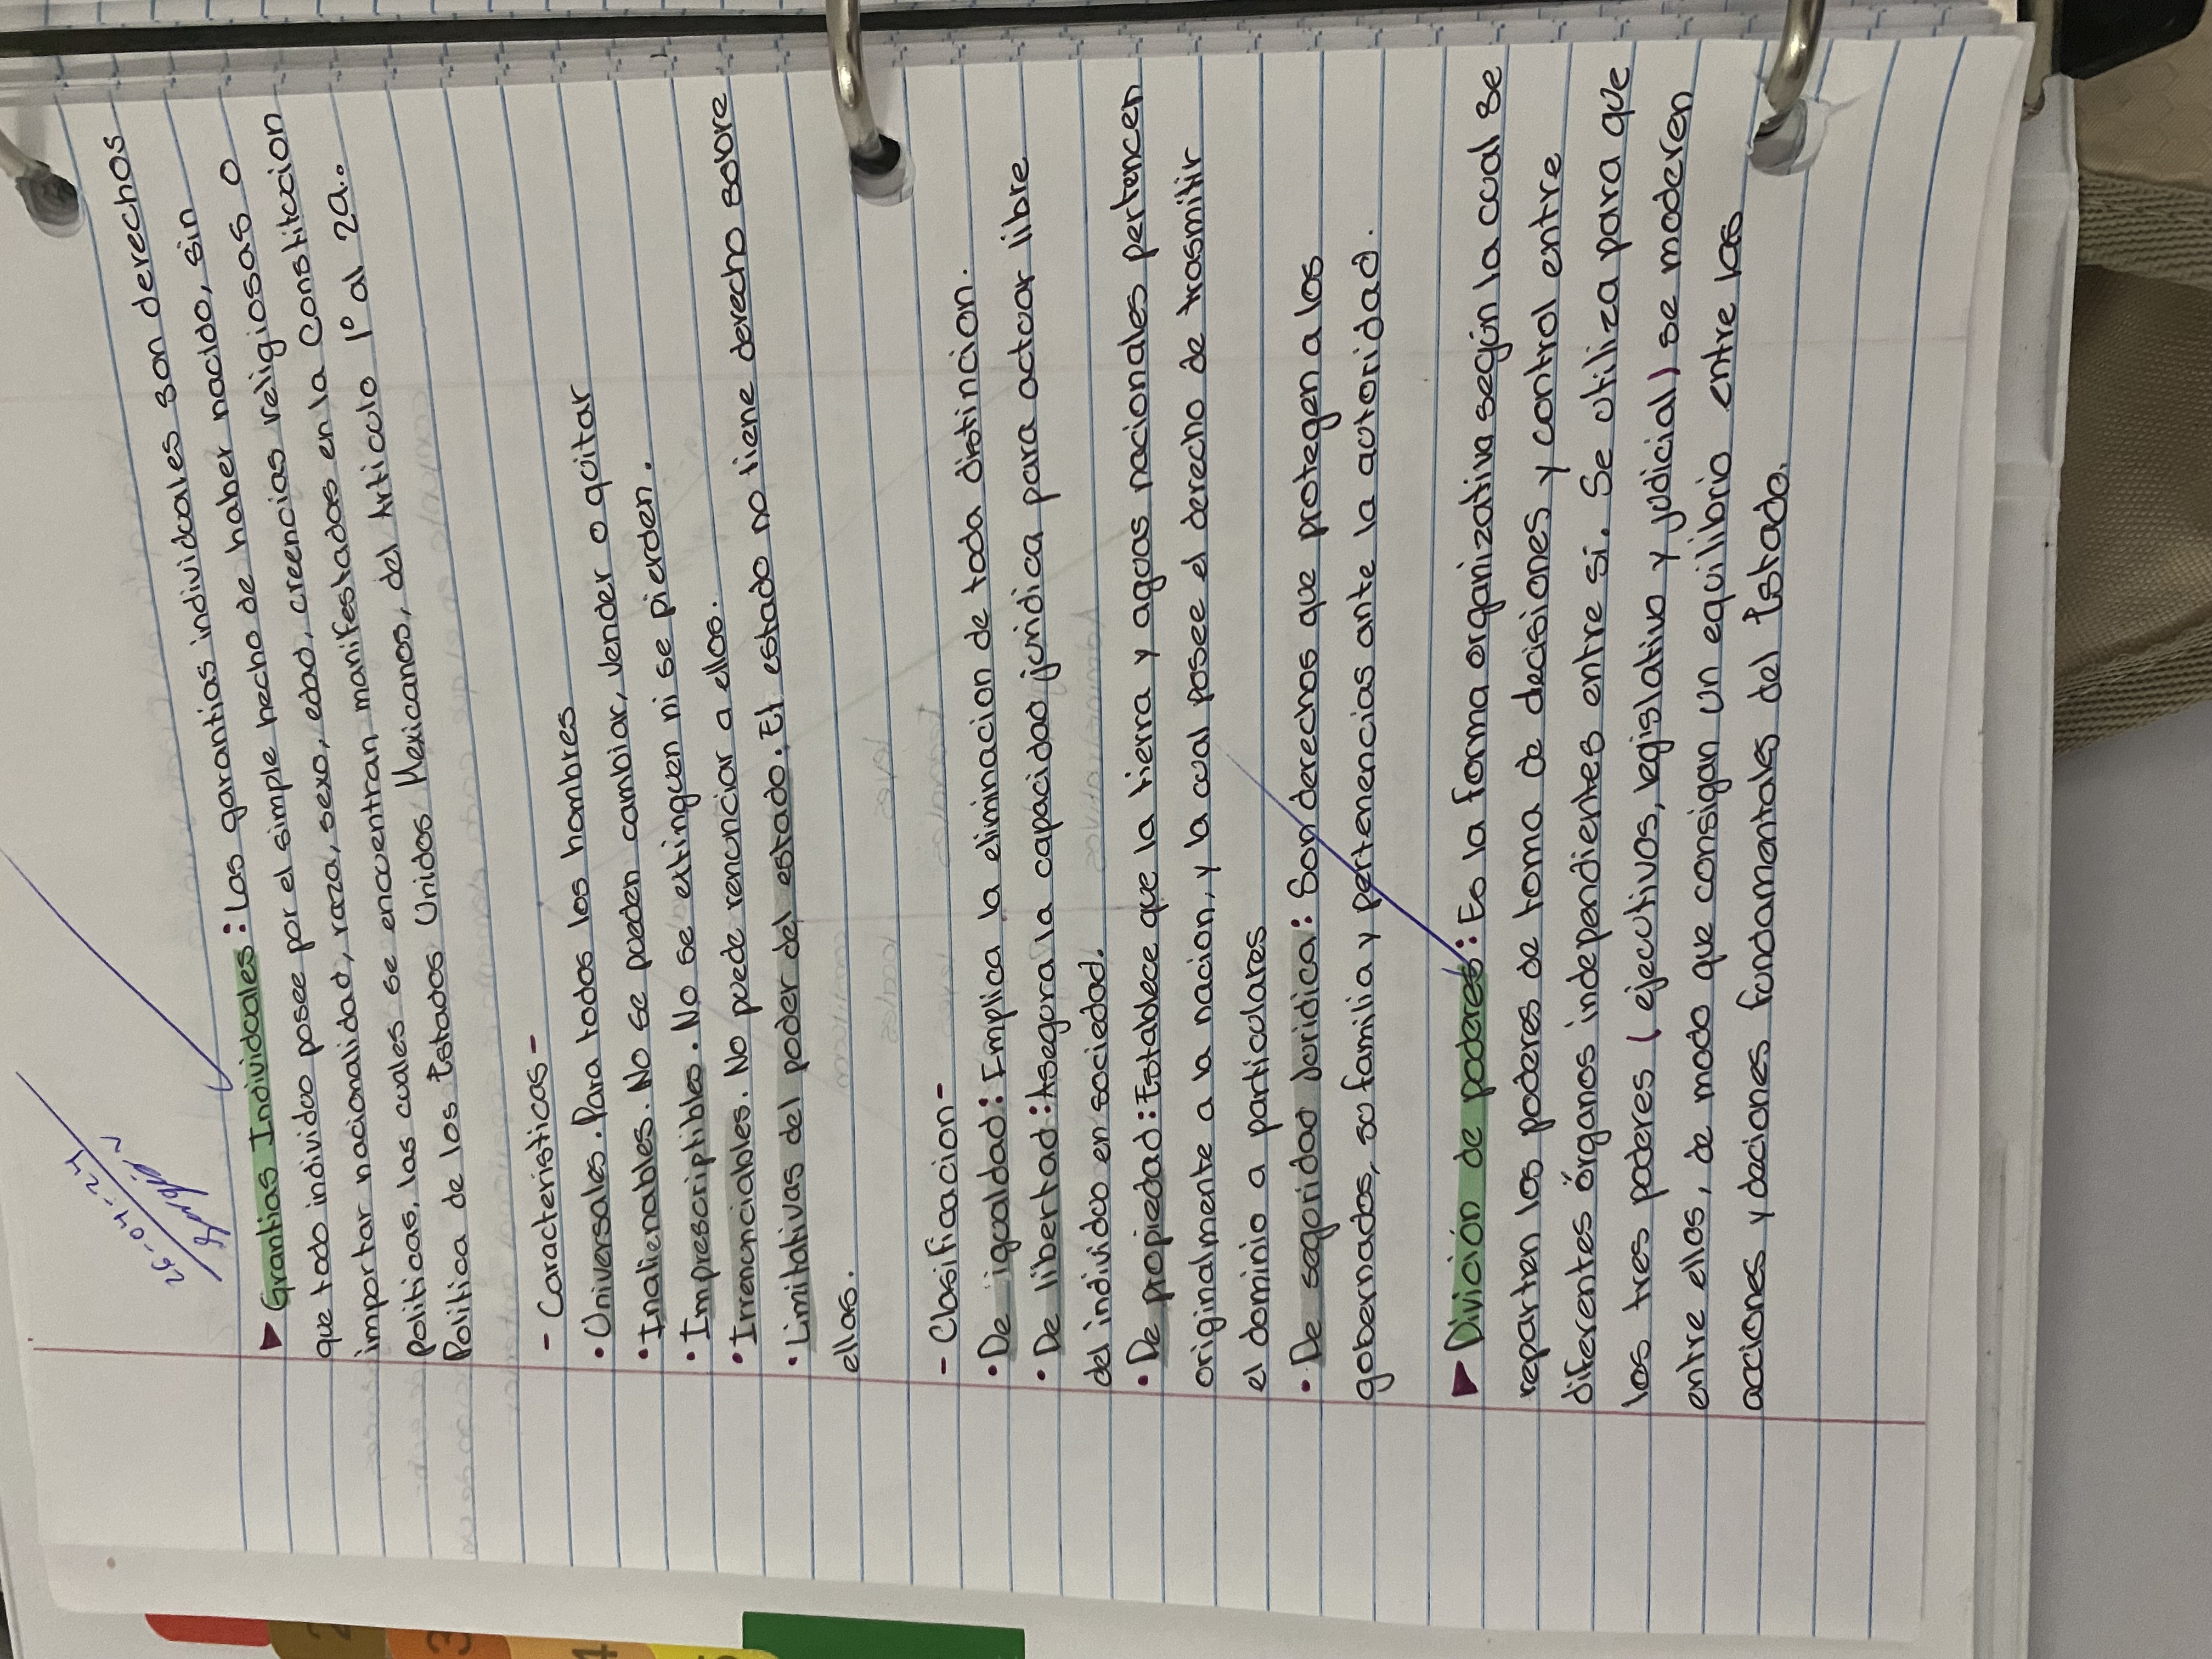 26-04-24
▶ Grantias Individuales: Las garantias individuales son derechos
que todo individuo posee por el simple hecho de haber nacido, sin
importar nacionalidad, raza, sexo, edad, creencias religiosas o
politicas, las cuales se encuentran manifestados en la Constitucion
Politica de los Estados Unidos Mexicanos, del Articulo 1° al 29..
- Caracteristicas -
• Universales. Para todos los hombres
• Inalienables. No se pueden cambiar, vender o quitar
• Imprescriptibles. No se extinguen ni se pierden.
• Irrenunciables. No puede renunciar a ellos.
• Limitativas del poder del estado. El estado no tiene derecho sobre
ellas.
- Clasificacion -
• De igualdad: Implica la eliminacion de toda distincion.
• De libertad: Asegura la capacidad juridica para actuar libre
del individuo en sociedad.
• De propiedad: Establece que la tierra y aguas nacionales pertencen
originalmente a la nacion, y la cual posee el derecho de trasmitir
el dominio a particulares
• De seguridad Juridica: Son derechos que protegen a los
gobernados, su familia y pertenencias ante la autoridad.
▶ Divición de poderes: Es la forma organizativa según la cual se
reparten los poderes de toma de decisiones y control entre
diferentes órganos independientes entre si. Se utiliza para que
los tres poderes (ejecutivos, legislativo y judicial) se moderen
entre ellos, de modo que consigan un equilibrio entre las
acciones y daciones fundamentales del Estado.
3
4